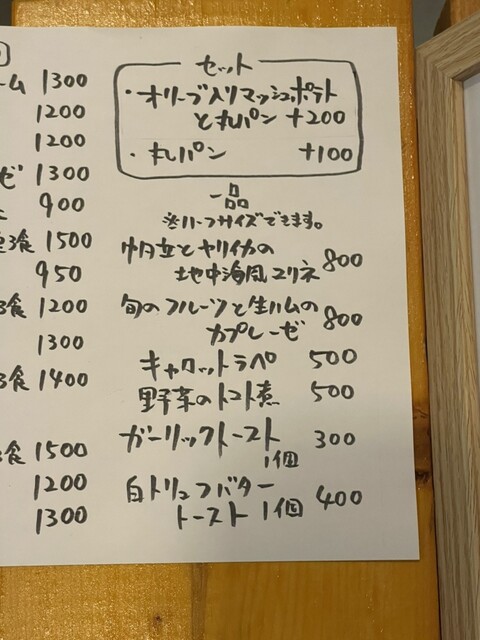 ーム 1300
1200
1200
ゼ 1300
900
食 1500
950
食 1200
1300
食 1400
食 1500
1200
1300
セット
・オリーブ入りマッシュポテト
と丸パン +200
・丸パン +100
一品
※ハーフサイズできます。
帆立とヤリイカの
地中海風マリネ 800
旬のフルーツと生ハムの
カプレーゼ 800
キャロットラペ 500
野菜のトマト煮 500
ガーリックトースト 300
1個
白トリュフバター
トースト 1個 400